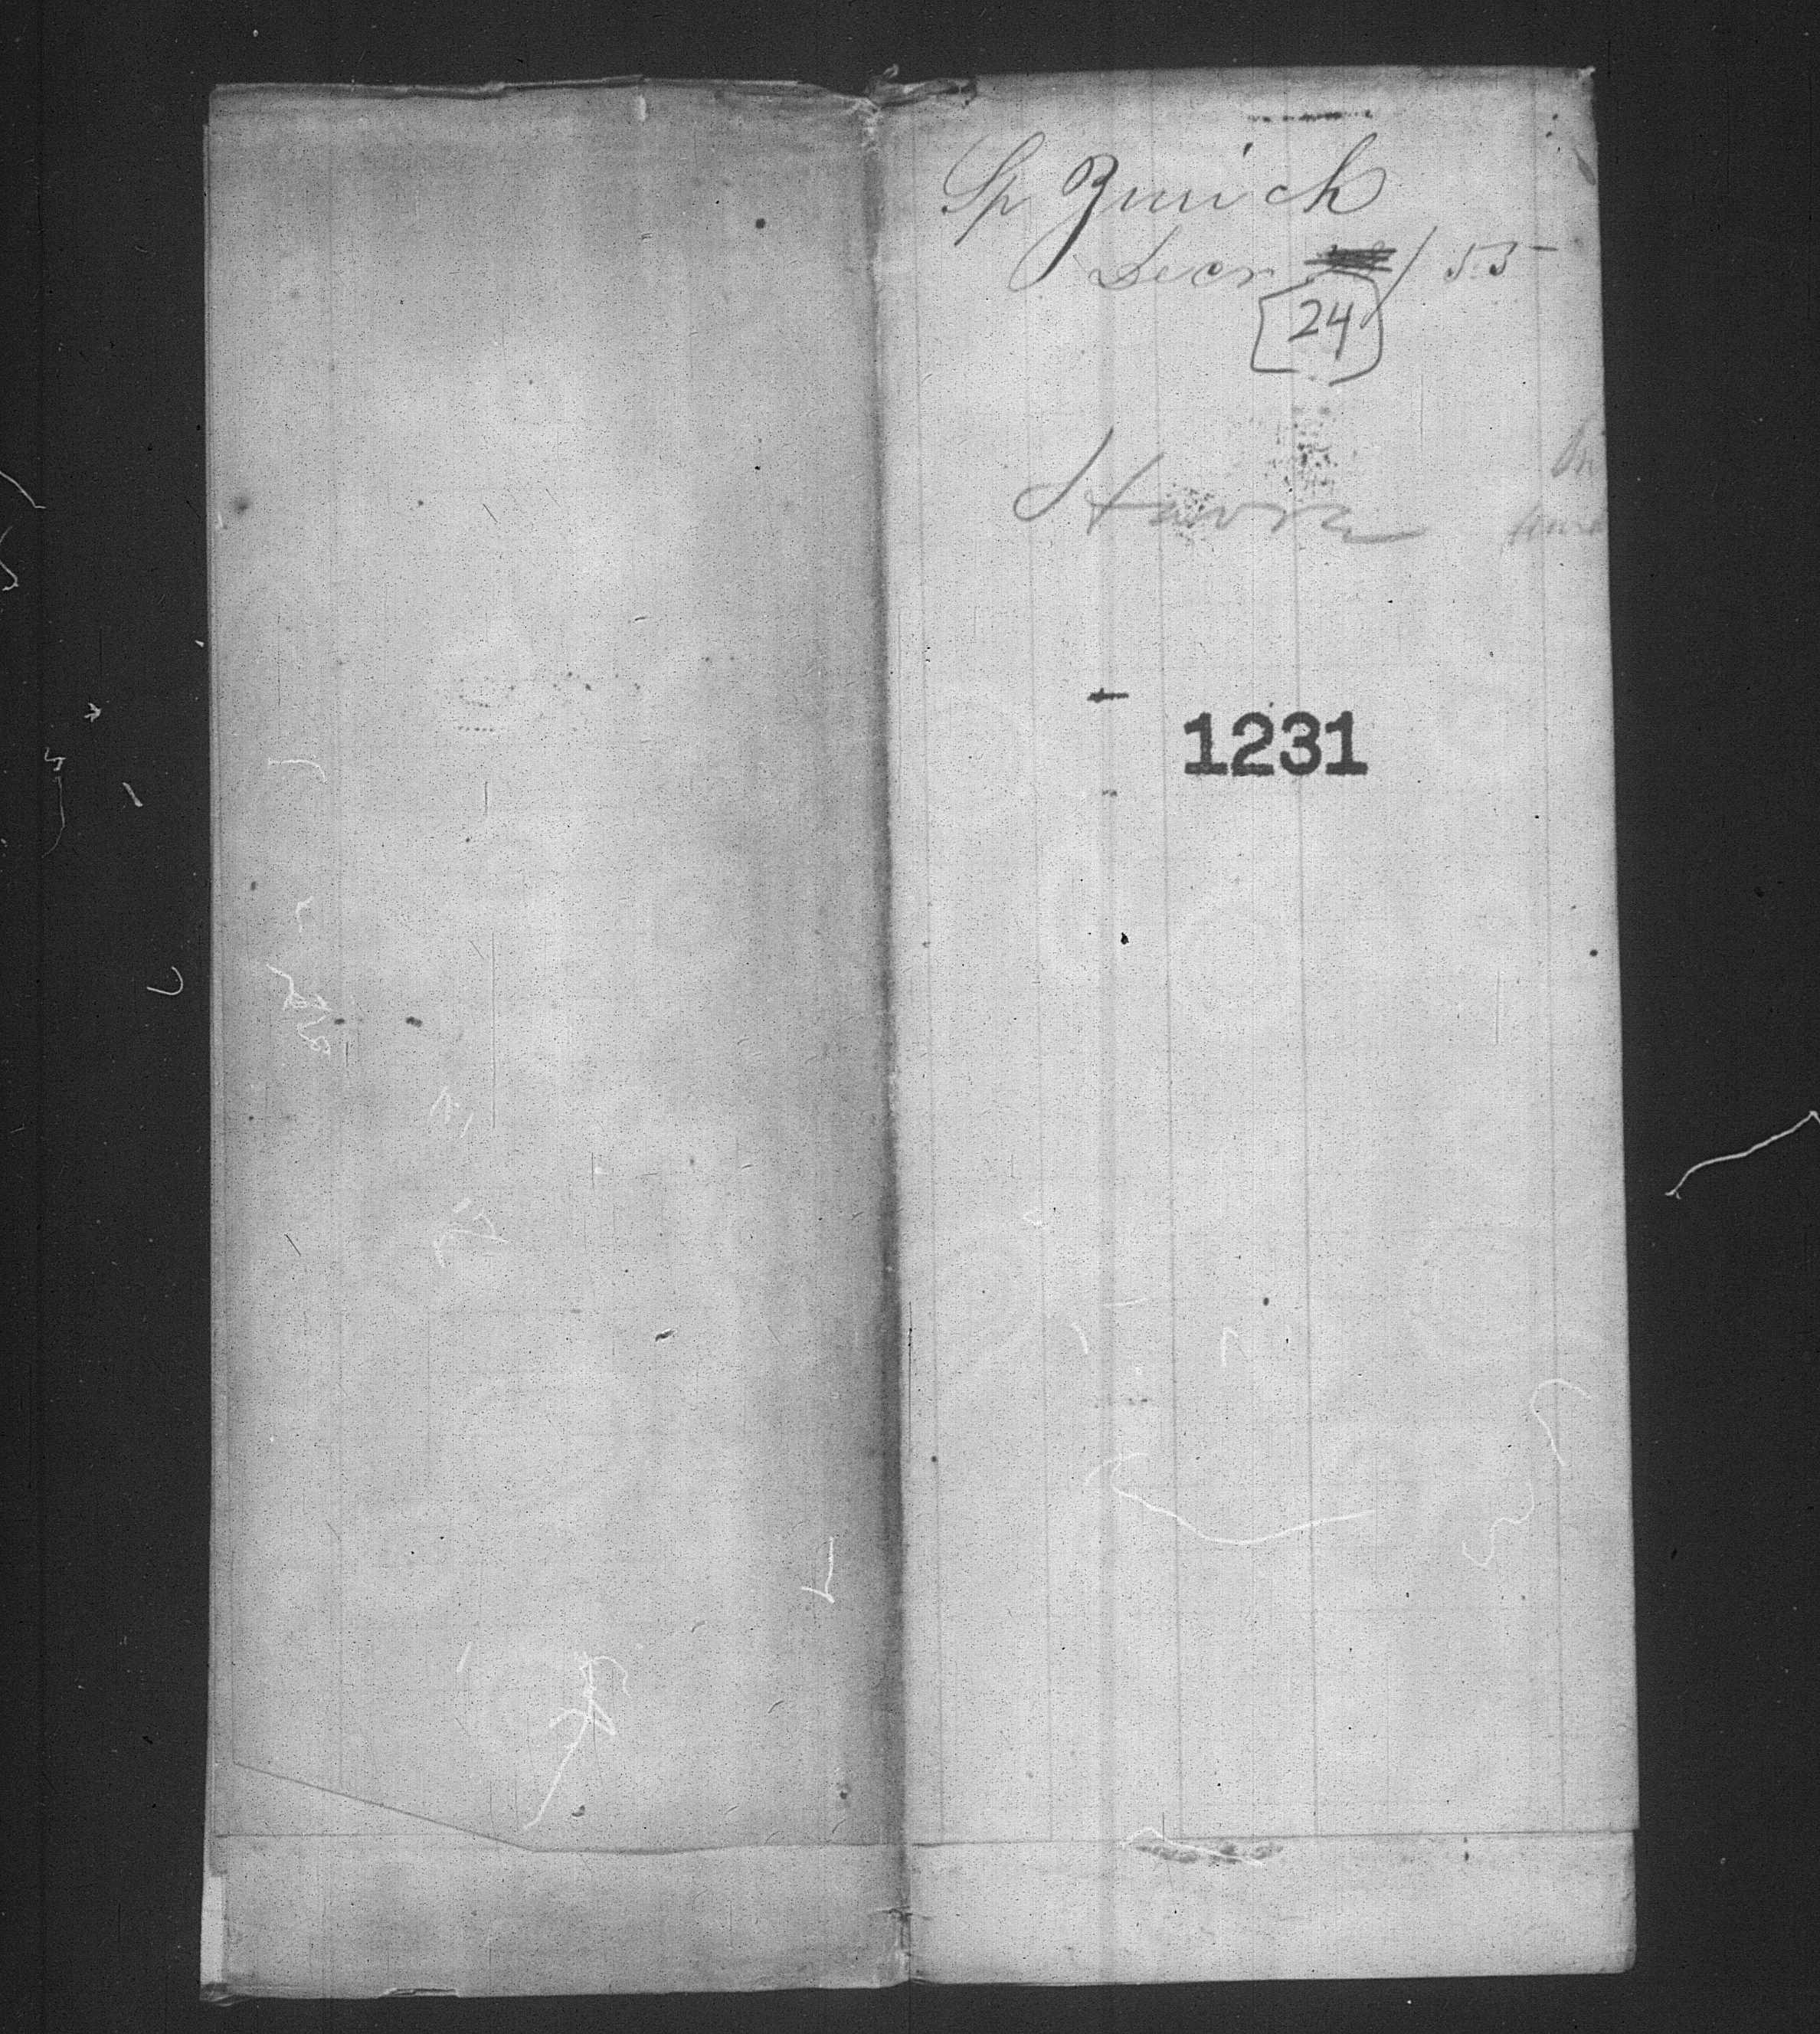 Sp Zurich
Decr / 55
24
Havre
1231